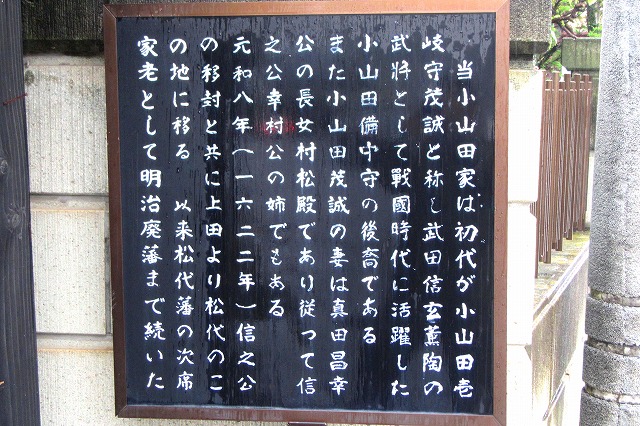 当小山田家は初代が小山田壱
岐守茂誠と称し武田信玄薫陶の
武將として戰國時代に活躍した
小山田備中守の後裔である
また小山田茂誠の妻は真田昌幸
公の長女村松殿であり従って信
之公幸村公の姉でもある
元和八年(一六二二年)信之公
の移封と共に上田より松代のこ
の地に移る 以来松代藩の次席
家老として明治廃藩まで続いた